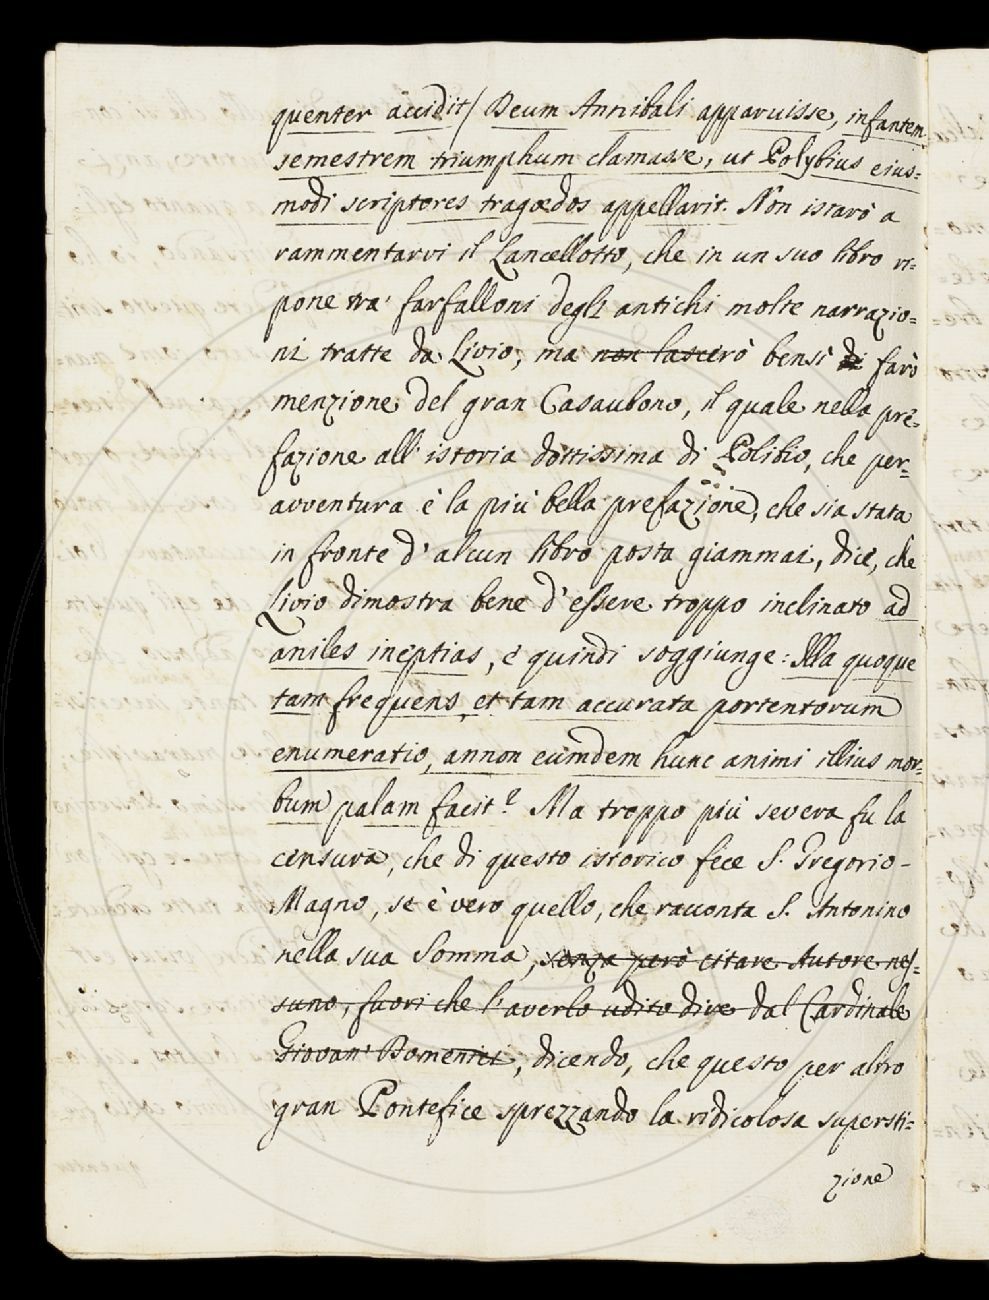 quenter accidit/ Deum Annibali apparuisse, infantem
semestrem triumphum clamasse, ut Polybius eius=
modi scriptores tragœdos appellarit. Non istarò a
rammentarvi il Lancellotto, che in un suo libro ri=
pone tra' farfalloni degli antichi molte narrazio=
ni tratte da Livio; ma non lascerò bensì di farò
menzione del gran Casaubono, il quale nella pre=
fazione all' istoria dottissima di Polibio, che per=
avventura è la più bella prefazione, che sia stata
in fronte d' alcun libro posta giammai, dice, che
Livio dimostra bene d' essere troppo inclinato ad
aniles ineptias, e quindi soggiunge: Illa quoque
tam frequens, et tam accurata portentorum
enumeratio, annon eumdem hunc animi illius mor=
bum palam facit? Ma troppo più severa fu la
censura, che di questo istorico fece S. Gregorio-
Magno, se è vero quello, che racconta S. Antonino
nella sua Somma, senza però citare Autore nes=
suno, fuori che l'averlo udito dire dal Cardinale
Giovan' Domenici, dicendo, che questo per altro
gran Pontefice sprezzando la ridicolosa supersti=
zione